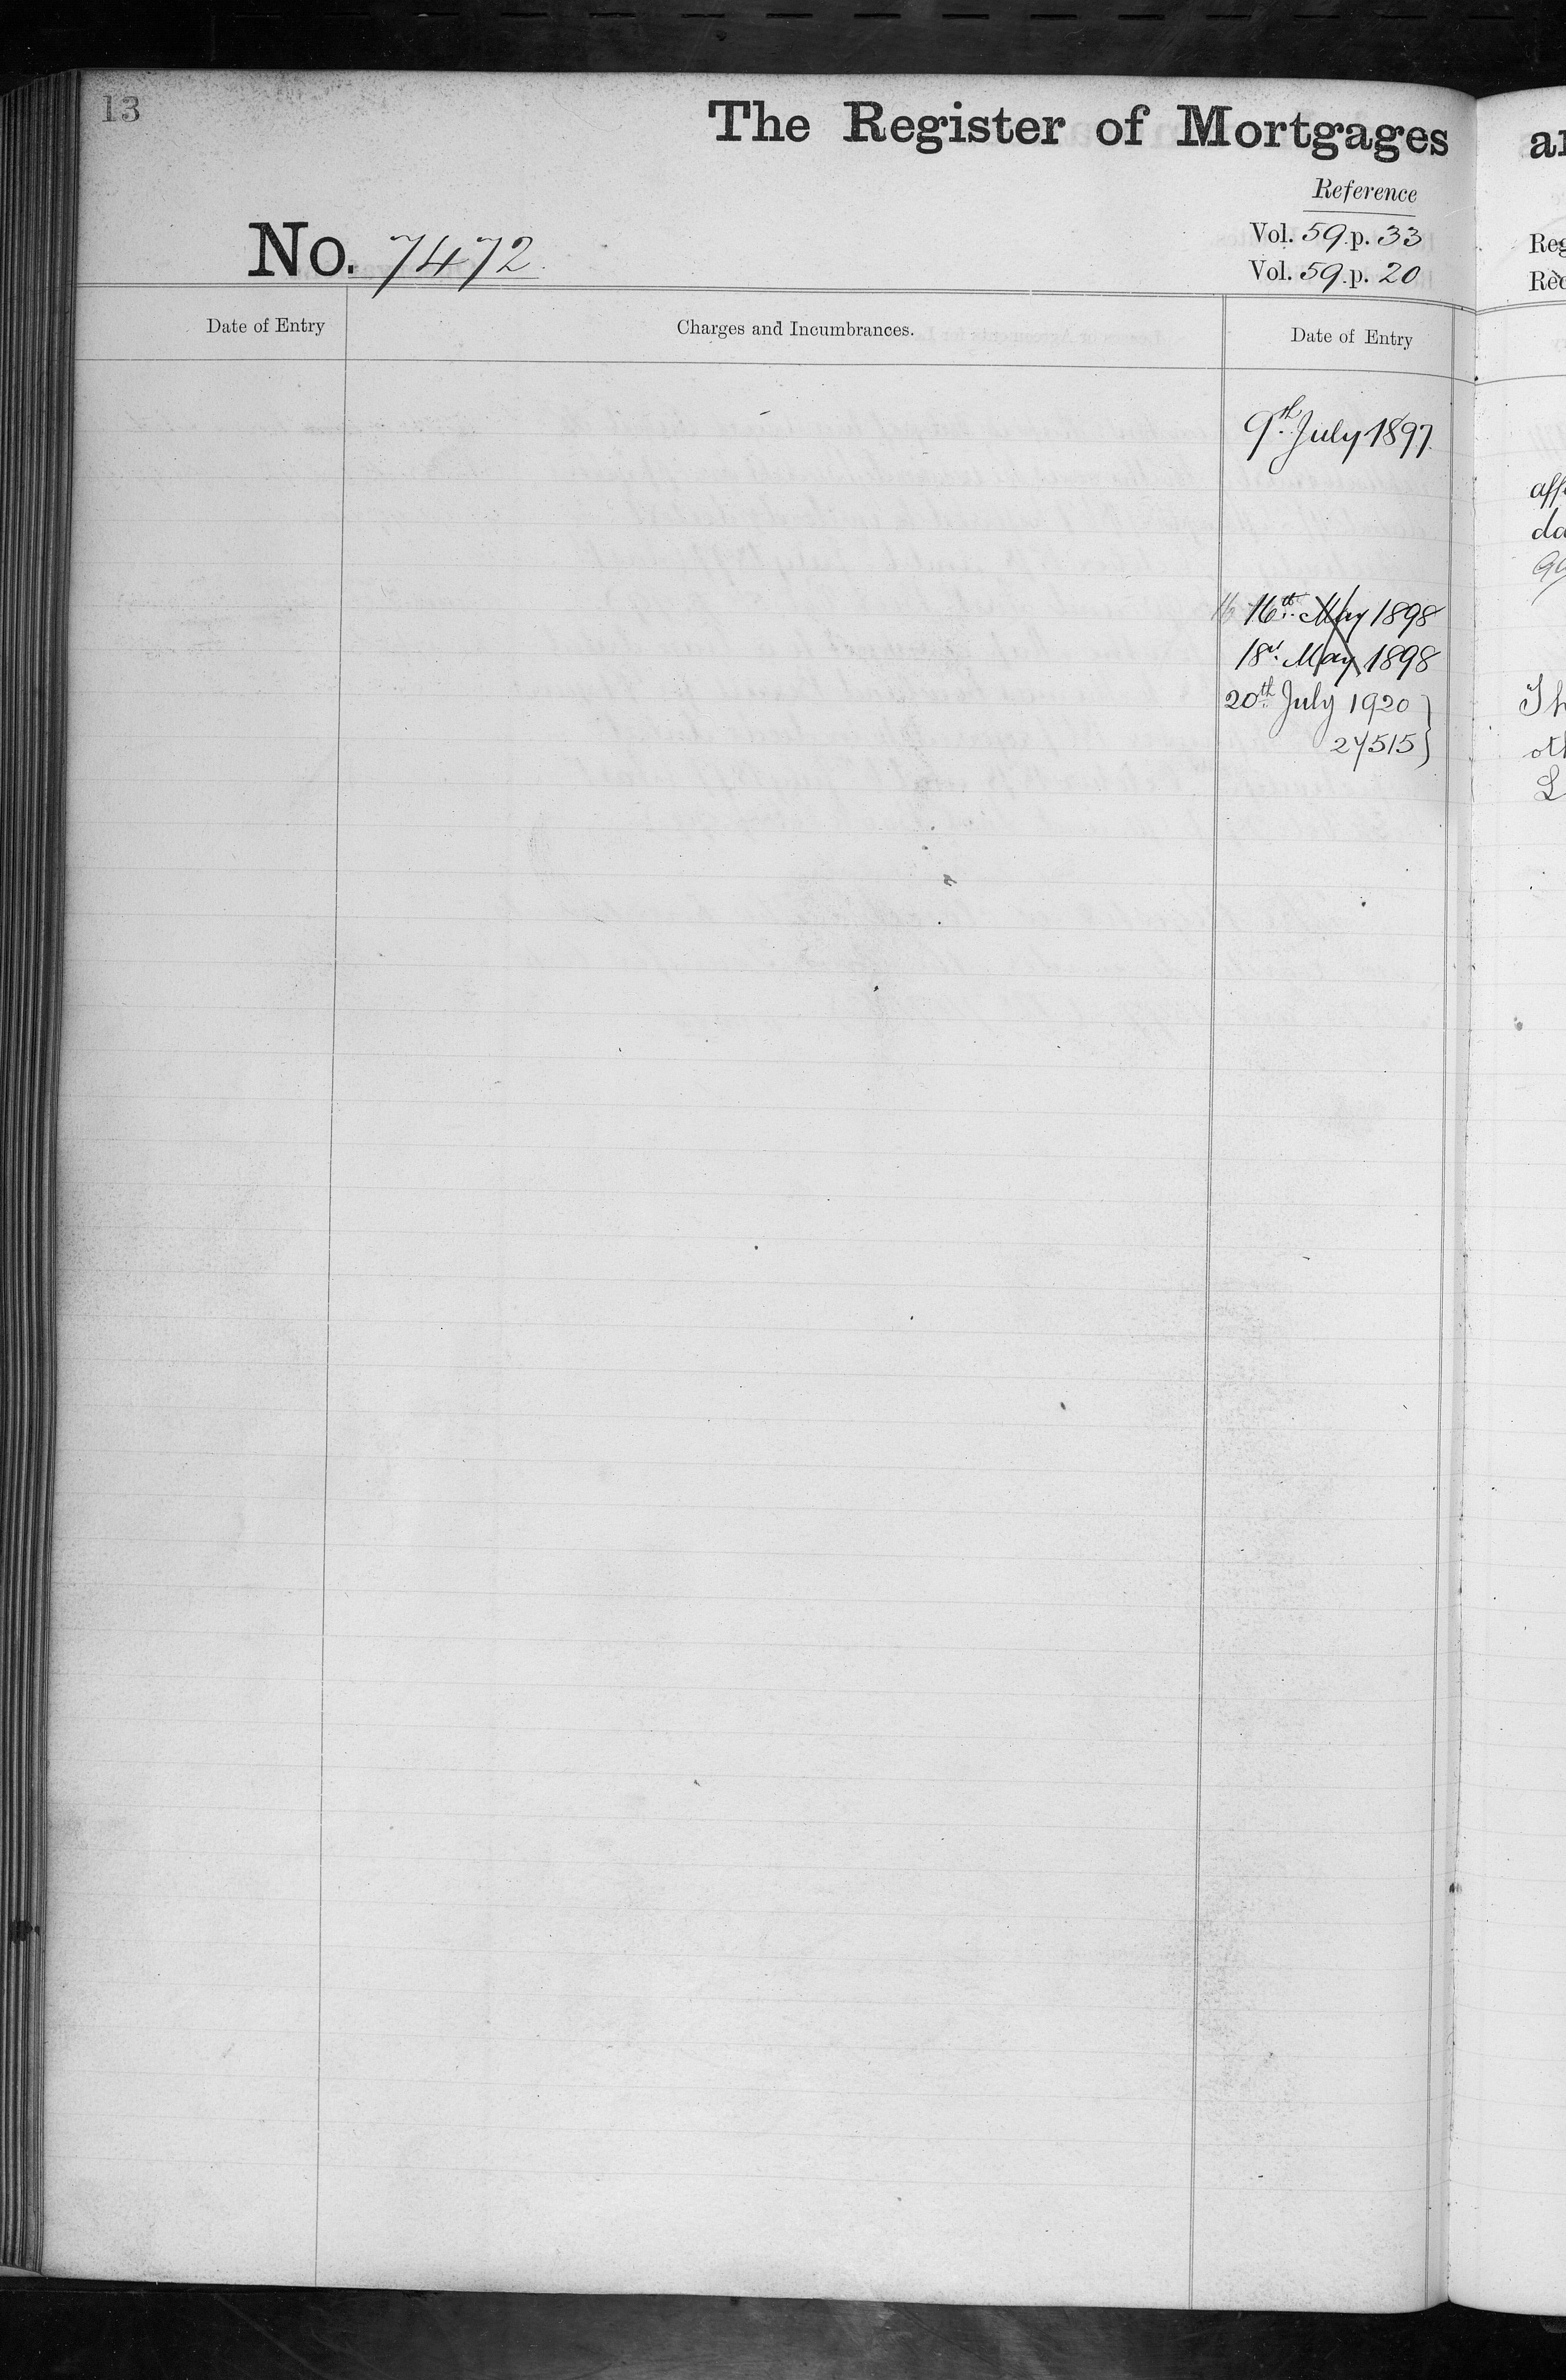 13
The Register of Mortgages
Reference
No. 7472.
Vol. 59. p. 33
Vol. 59. p. 20
Date of Entry
Charges and Incumbrances.
Date of Entry
9th. July 1897.
16 16th. May 1898
18th. May 1898
20th July 1920
27515
Reg
aff
da
Th
oth
L